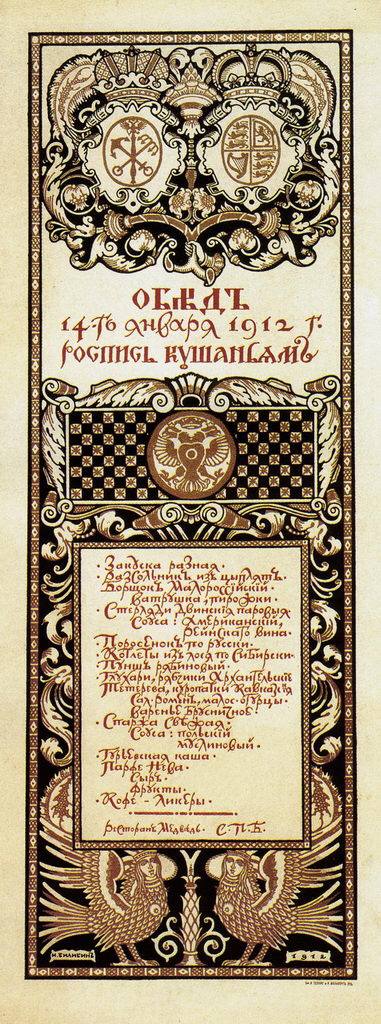 ОБѢДЪ
14-го января 1912 г.
роспись кушаньямъ
· Закуска разная ·
· Разсольникъ изъ цыплятъ ·
· Борщокъ Малороссійскій ·
Ватрушка, пирожки ·
· Стерляди Двинскія паровыя
Соуса: Американскій,
Рейнскаго вина ·
· Поросенокъ по русски ·
· Котлеты изъ лося по Сибирски ·
· Пуншъ рябиновый ·
· Глухари, рябчики Архангельскіе
Тетерева, куропатки Кавказскія
Сал. ромэнъ, малос. огурцы ·
варенье Брусничное ·
· Спаржа Свѣжая ·
Соуса: польскій
муслиновый ·
· Гурьевская каша ·
· Парфе Нева ·
Сыръ ·
Фрукты ·
· Кофе - Ликеры ·
Ресторанъ Медвѣдь. С.П.Б.
И. БИЛИБИНЪ
1912